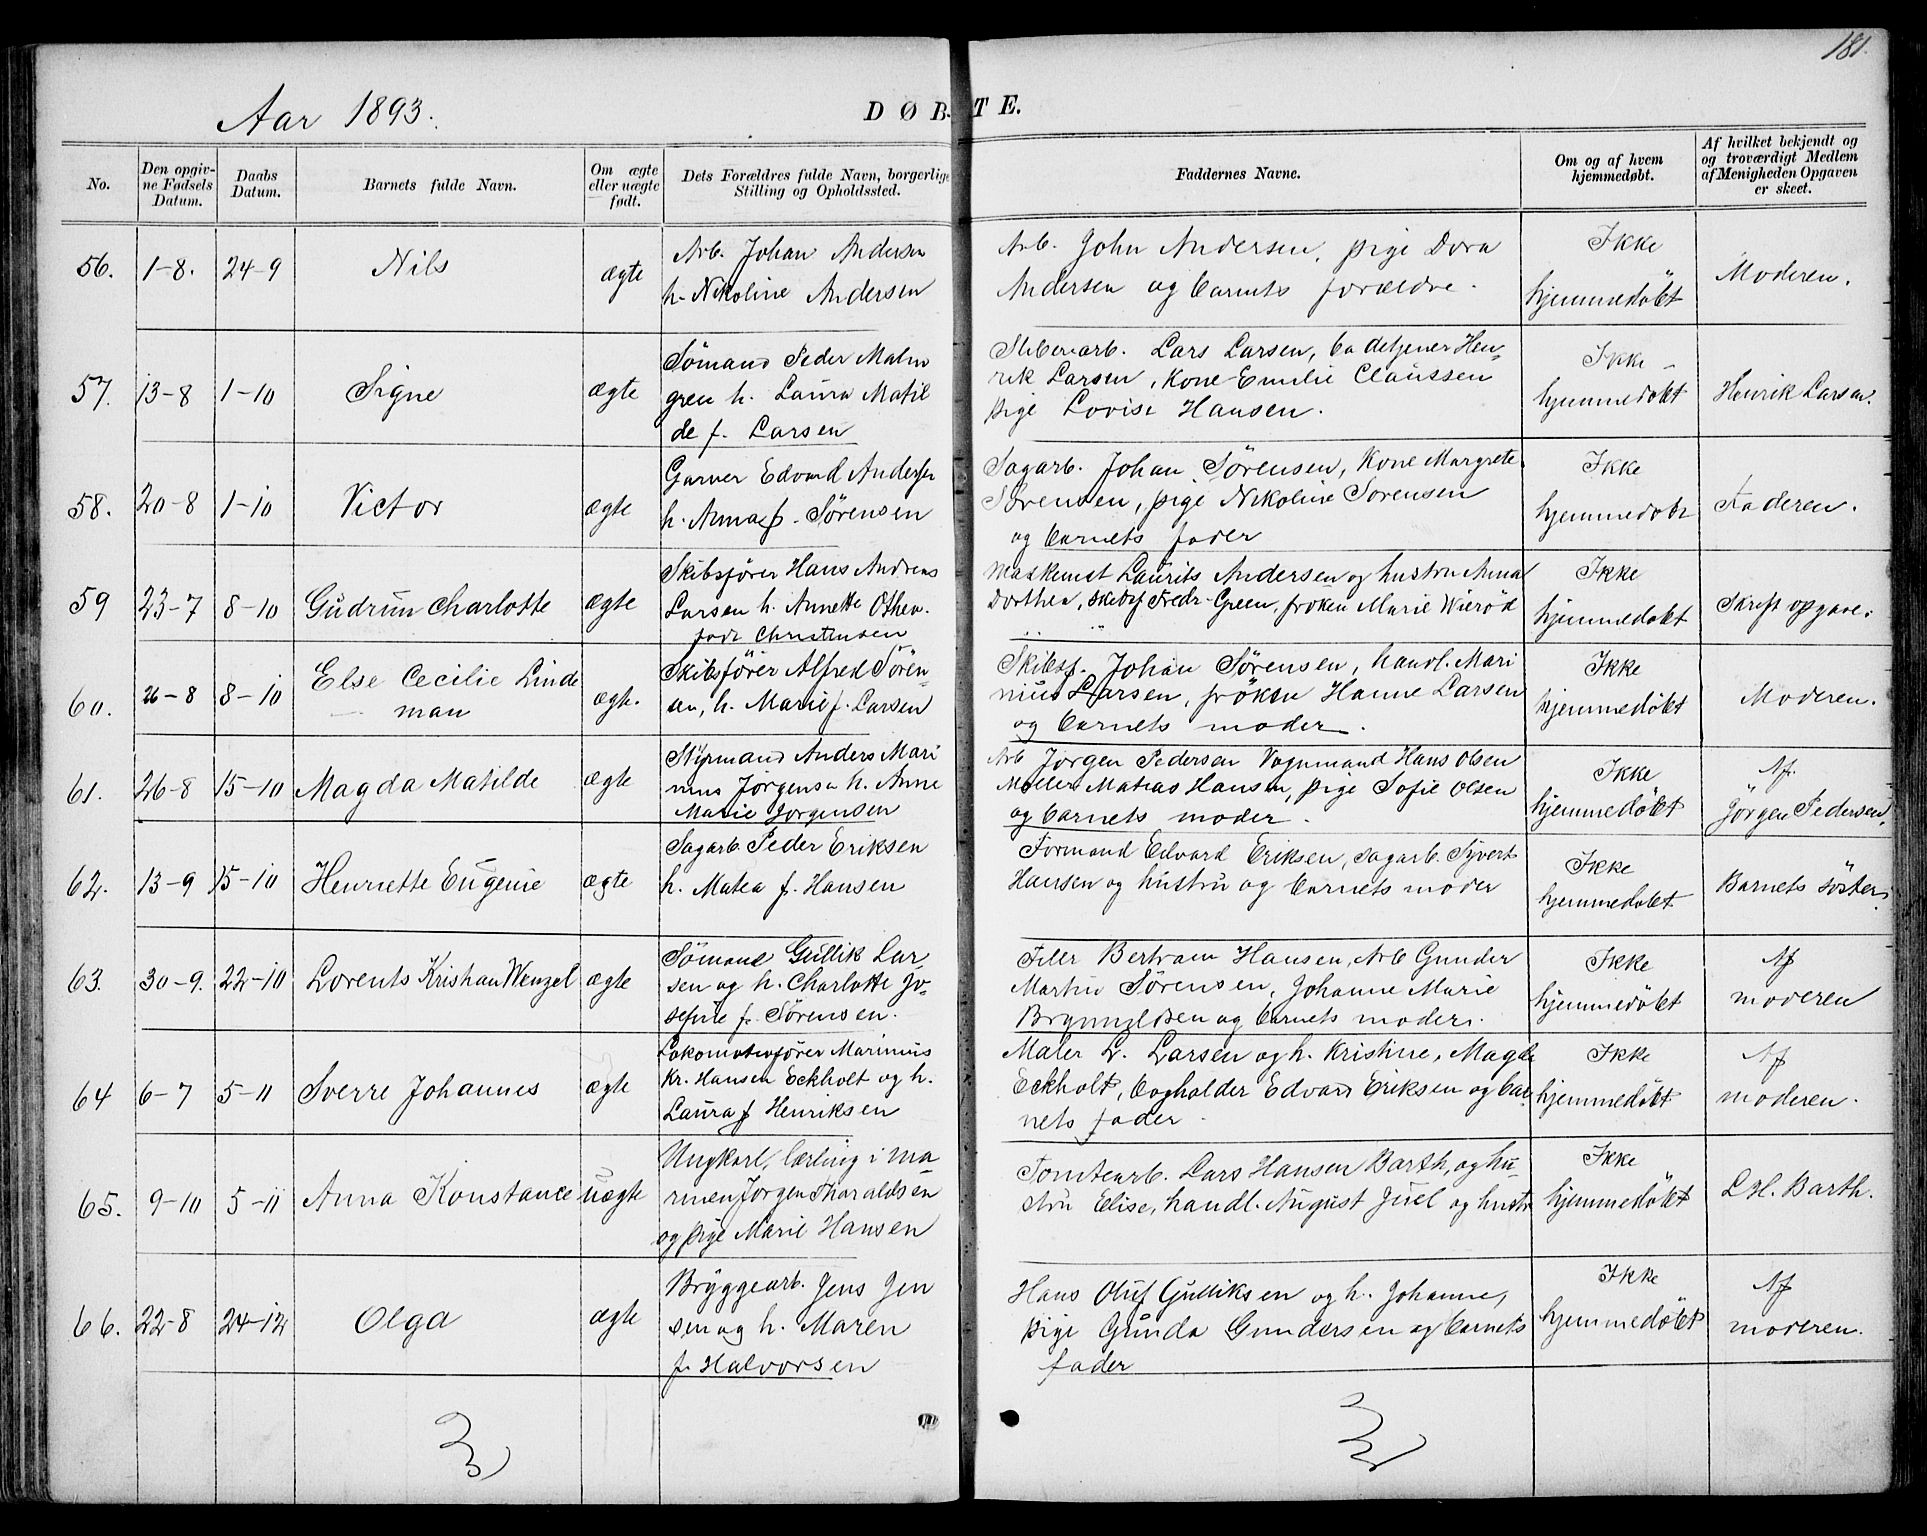 181.
Aar 1893.
DØBTE.
No.
Den opgivne Fødsels Datum.
Daabs Datum.
Barnets fulde Navn.
Om ægte eller uægte født.
Dets Forældres fulde Navn, borgerlige Stilling og Opholdssted.
Faddernes Navne.
Om og af hvem hjemmedøbt.
Af hvilket bekjendt og og troværdigt Medlem af Menigheden Opgaven er skeet.
56. 1-8. 24-9 Nils ægte
Arb. Johan Andersen
h. Nikoline Andersen
Arb. John Andersen, pige Dora
Andersen og barnets forældre.
Ikke
hjemmedøbt
Moderen.
57. 13-8 1-10 Signe ægte
Sömand Peder Malm
gren h. Laura Matil
de f. Larsen
Lars Larsen, badetjener Hen-
rik Larsen, Kone Emilie Claussen
pige Lovise Hansen.
Ikke -
hjemmedøbt
Henrik Larsen.
58. 20-8 1-10 Victor ægte
Garver Edvard Andersen
h. Anna f. Sörensen
Sagarb. Johan Sörensen, Kone Margrete
Sørensen, pige Nikoline Sorensen
og barnets fader
Ikke
hjemmedøbt
Faderen.
59 23-7 8-10 Gudrun Charlotte ægte
Skibsfører Hans Andreas
Larsen h. Annette Othea
født Christensen
Maskenist Laurits Andersen og hustru Anna
Dorthea, skibsf Fredr. Green, frøken Marie Wierød
Ikke
hjemmedøbt
Skrift opgave.
60. 26-8 8-10 Else Cecilie Linde
man
ægte.
Skibsfører Alfred Sören-
sen, h. Marie f. Larsen
Skibsf. Johan Sørensen, handl. Mari
nius Larsen, frøken Hanne Larsen
og barnets moder.
Ikke
hjemmedøbt
Moderen.
61. 26-8 15-10 Magda Matilde ægte
Styrmand Anders Mari
nius Jørgensen h. Anne
Marie Jorgensen
Arb Jorgen Pedersen Vognmand Hans Olsen
Møller Matias Hansen, pige Sofie Olsen
og barnets moder.
Ikke
hjemmedøbt
Af.
Jörgen Pedersen.
62. 13-9 15-10 Henriette Eugenie ægte
Sagarb. Peder Eriksen
h. Matea f. Hansen
Formand Edvard Eriksen, sagarb. Syvert
Hansen og hustru og barnets moder
Ikke
hjemmedøbt
Barnets søster.
63. 30-9. 22-10 Lorents Kristian Wenzel ægte
Sömand Gullik Lar-
sen og h. Charlotte Jo-
sefine f. Sörensen.
Filer Bertram Hansen, Arb Gunder
Martin Sörensen, Johanne Marie
Brynmldsen og barnets moder.
Ikke
hjemmedøbt
Af
moderen
64 6-7 5-11 Sverre Johannes ægte
Lokomotivfører Marinius
Kr. Hansen Eckholt og h.
Laura f Henriksen
Maler L. Larsen og h. Kristine, Magda
Eckholt, bogholder Edvard Eriksen og bar
nets fader.
Ikke
hjemmedøbt
Af
moderen.
65. 9-10 5-11 Anna Konstance uægte
Ungkarl, lærling i ma
rinen Jorgen Tharaldsen
og pige Marie Hansen
Tomtearb. Lars Hansen Barth, og hu-
stru Elise, handl. August Juel og hustr
Ikke
hjemmedøbt
L.H. Barth.
66. 22-8 24-12 Olga ægte
Bryggearb. Jens Jen
sen og h. Maren
f. Halvorsen
Hans Oluf Gulliksen og h. Johanne,
pige Gunda Gundersen og barnets
fader
Ikke
hjemmedøbt
Af
moderen.